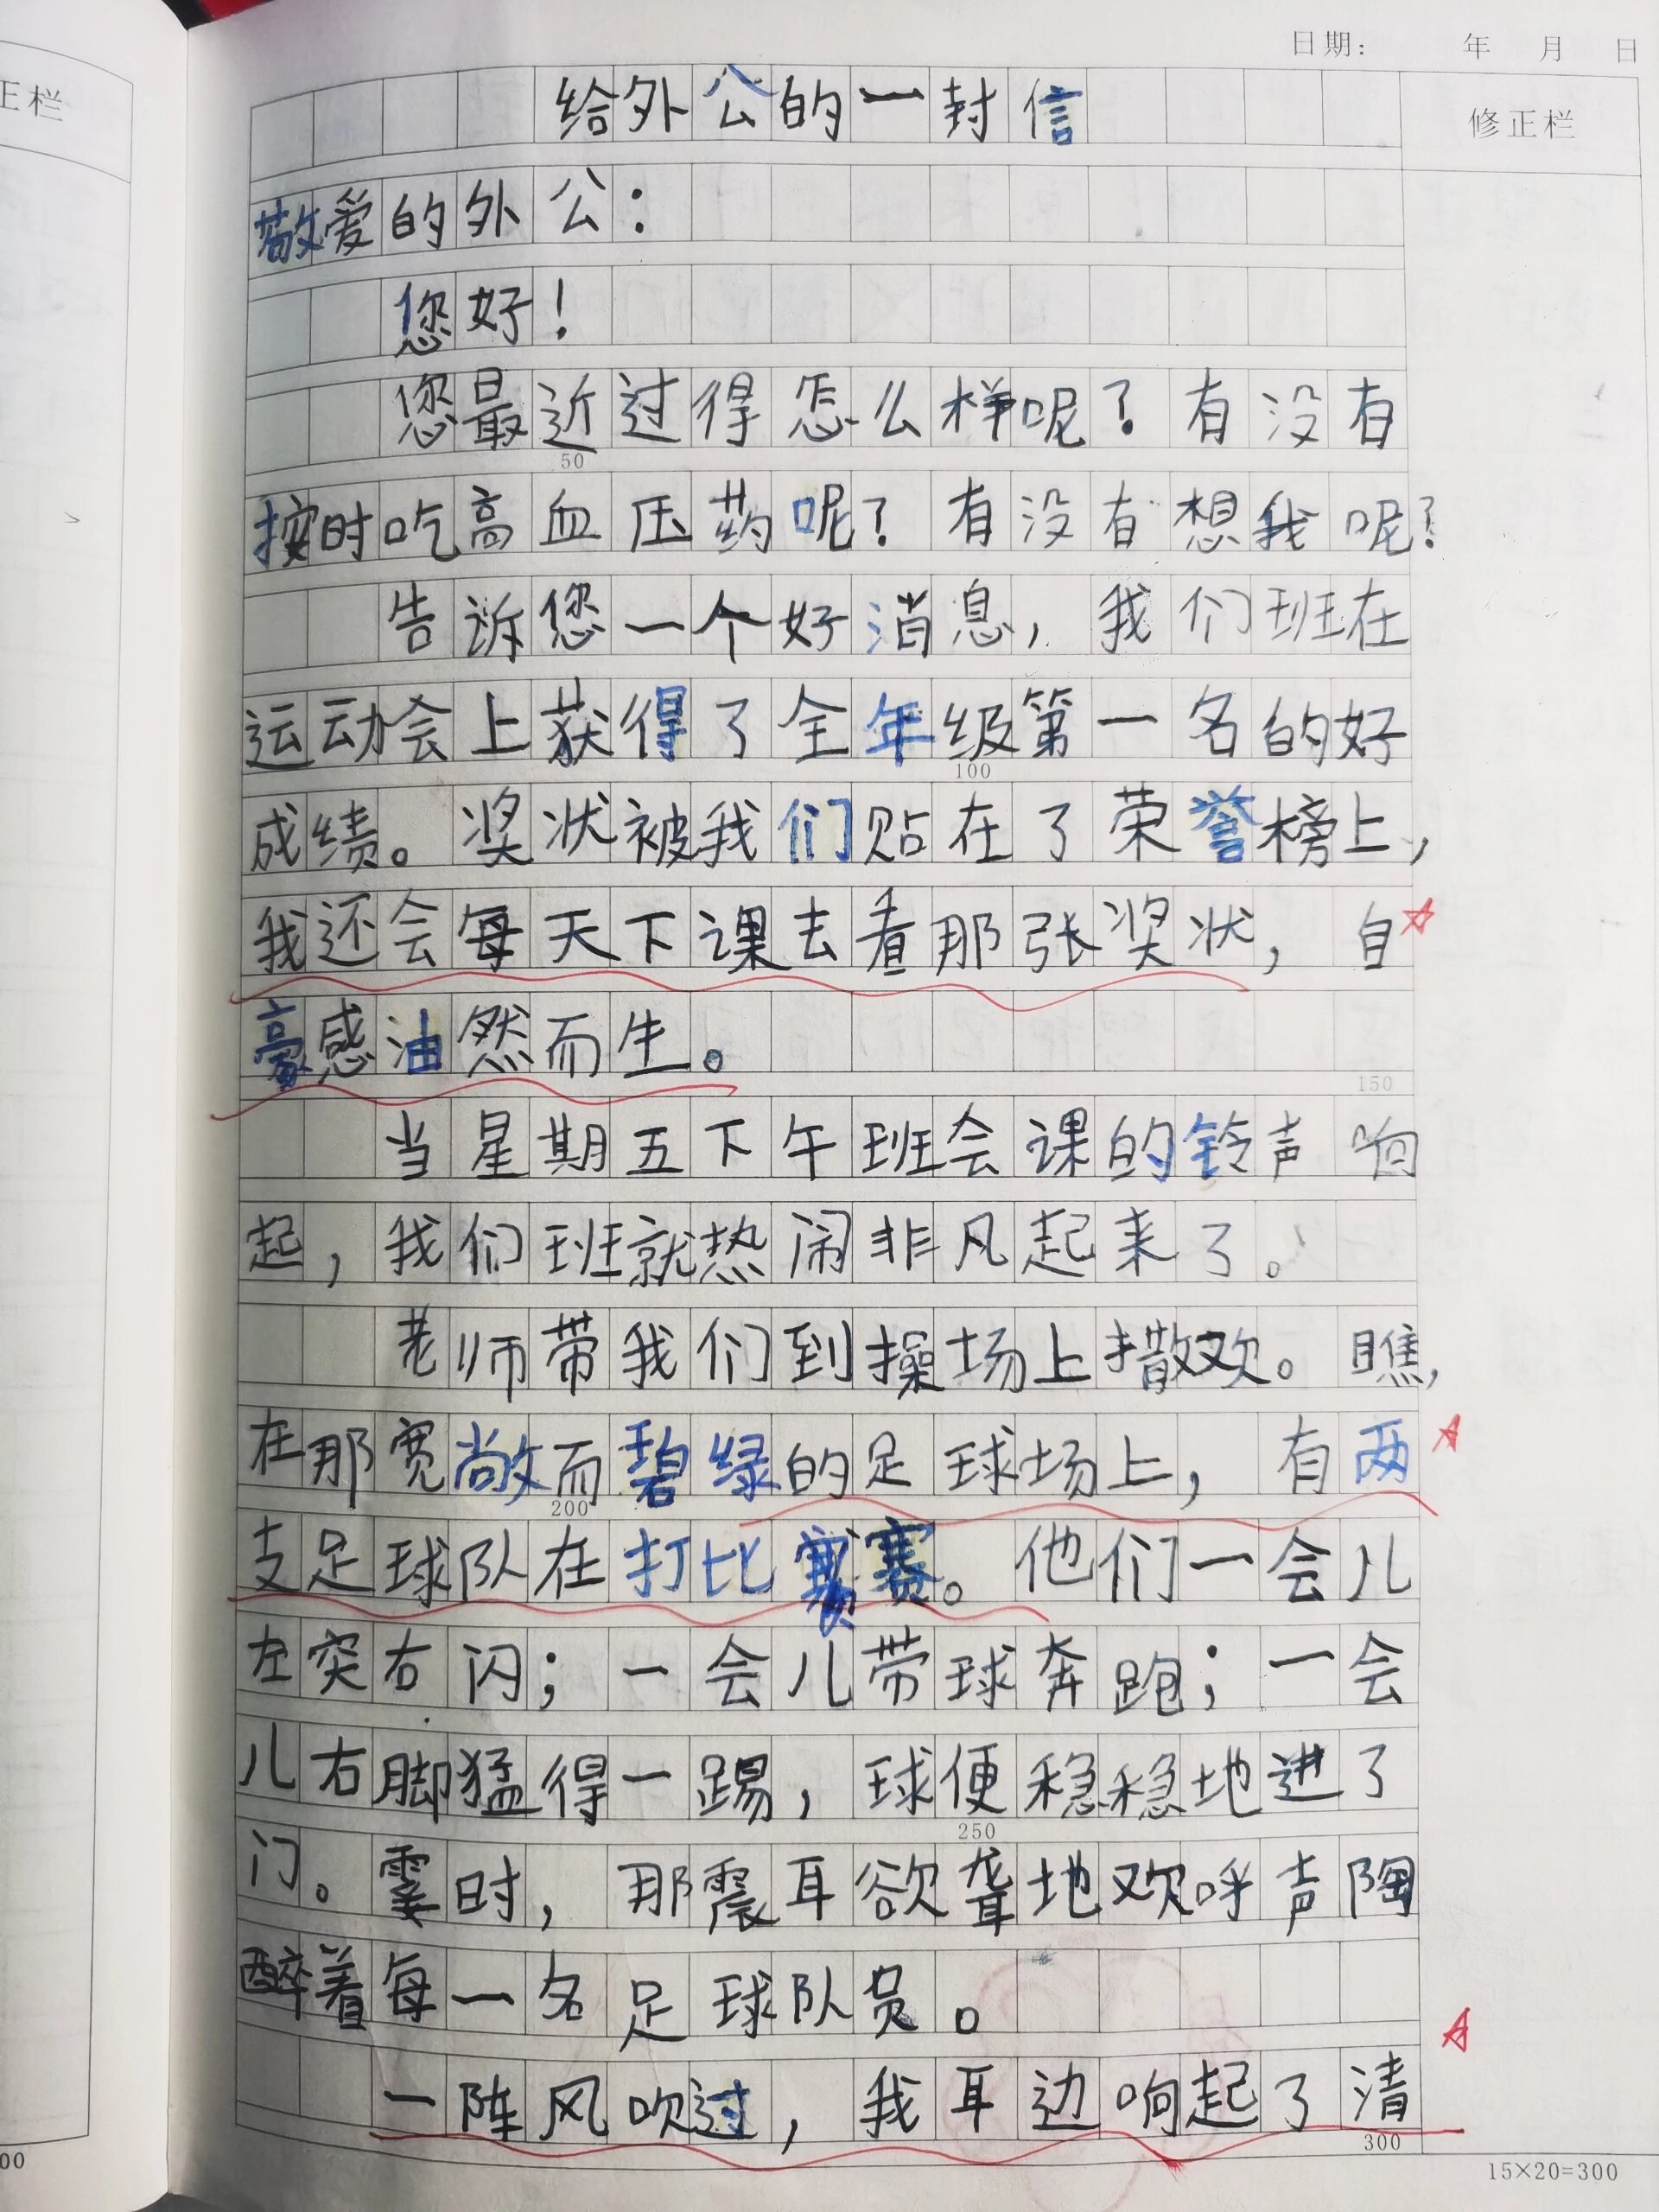 日期： 年 月 日
正栏
修正栏
给外公的一封信
敬爱的外公：
您好！
您最近过得怎么样呢？有没有
50
按时吃高血压药呢？有没有想我呢？
告诉您一个好消息，我们班在
运动会上获得了全年级第一名的好
100
成绩。奖状被我们贴在了荣誉榜上，
我还会每天下课去看那张奖状，自
豪感油然而生。
150
当星期五下午班会课的铃声响
起，我们班就热闹非凡起来了。
老师带我们到操场上撒欢。瞧，
在那宽敞而碧绿的足球场上，有两
200
支足球队在打比赛。他们一会儿
左突右闪；一会儿带球奔跑；一会
儿右脚猛得一踢，球便稳稳地进了
250
门。霎时，那震耳欲聋地欢呼声陶
醉着每一名足球队员。
一阵风吹过，我耳边响起了清
300
00
15×20=300